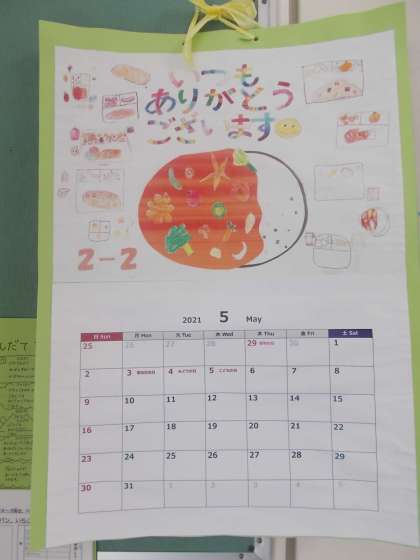 いつも
ありがとう
ございます
2-2
2021 5 May
日 Sun 月 Mon 火 Tue 水 Wed 木 Thu 金 Fri 土 Sat
25 26 27 28 29 30 1
2 3 憲法記念日 4 みどりの日 5 こどもの日 6 7 8
9 10 11 12 13 14 15
16 17 18 19 20 21 22
23 24 25 26 27 28 29
30 31 1 2 3 4 5